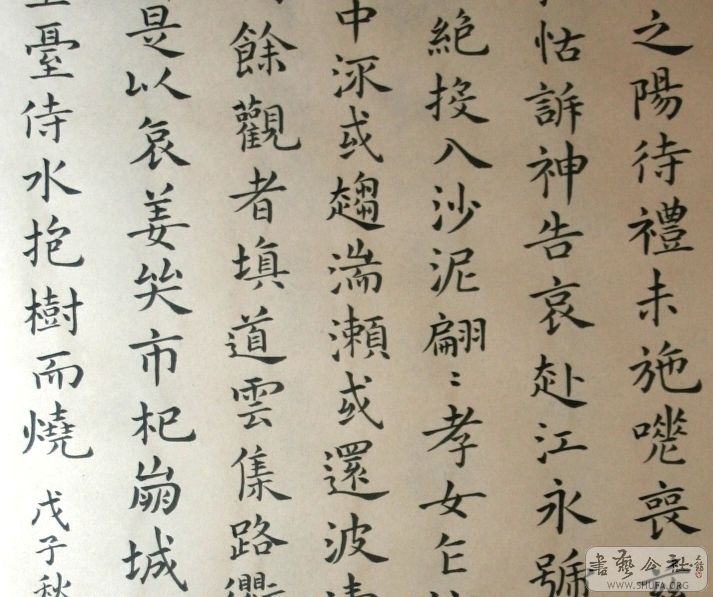 之陽待禮未施嗟喪
怙訴神告哀赴江永號
絶投入沙泥翩〻孝女乍
中流或趨湍瀨或還波濤
餘觀者填道雲集路衢
是以哀姜哭市杞崩城
臺侍水抱樹而燒
戊子秋
書藝公社
WWW.SHUFA.ORG